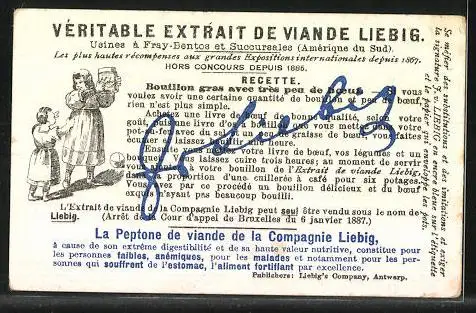 VÉRITABLE EXTRAIT DE VIANDE LIEBIG.
Usines à Fray-Bentos et Succursales (Amérique du Sud).
Les plus hautes récompenses aux grandes Expositions internationales depuis 1867.
HORS CONCOURS DEPUIS 1885.
RECETTE.
Bouillon gras avec très peu de bœuf.
voulez avoir une certaine quantité de bouillon et peu de bœuf,
rien n'est plus simple.
Achetez une livre de bœuf de bonne qualité, selon votre
goût, puis une livre d'os dans lequel vous mettez
pot-au-feu avec du sel, un
laissez cuire heure.
votre livre de bœuf, vos légumes et un
vous laissez cuire trois heures; au moment de servir
votre bouillon de l'Extrait de viande Liebig,
proportion d'une cuillerée à café pour six potages.
Vous avez par ce procédé un bouillon délicieux et du bœuf
exquis n'ayant pas beaucoup bouilli.
L'Extrait de viande de la Compagnie Liebig peut seul être vendu sous le nom de
Liebig. (Arrêt de la Cour d'appel de Bruxelles du 6 janvier 1887.)
La Peptone de viande de la Compagnie Liebig,
à cause de son extrême digestibilité et de sa haute valeur nutritive, constitue pour
les personnes faibles, anémiques, pour les malades et notamment pour les per-
sonnes qui souffrent de l'estomac, l'aliment fortifiant par excellence.
Publishers: Liebig's Company, Antwerp.
Se méfier des substitutions et des imitations et exiger
la signature J. v. LIEBIG en encre bleue sur l'étiquette
et le papier qui enveloppe les pots.
JvLiebig